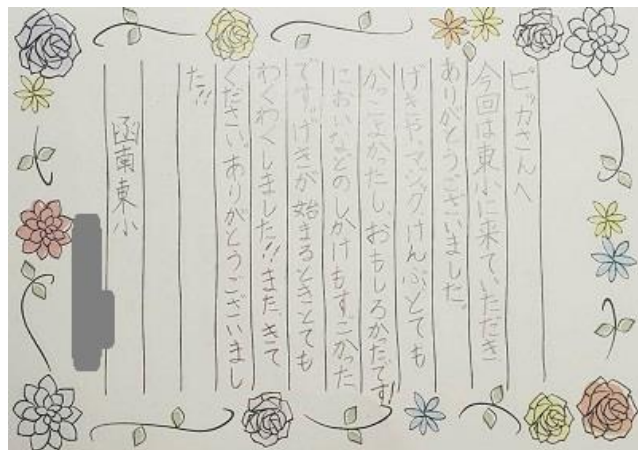 ピッカさんへ
今回は東小に来ていただき
ありがとうございました。
げきや、マジックけんぶとても
かっこよかったし、おもしろかったです!
においなどのしかけもすごかった
です。げきが始まるときとても
わくわくしました!!また、きて
ください。ありがとうございまし
た!!
函南東小